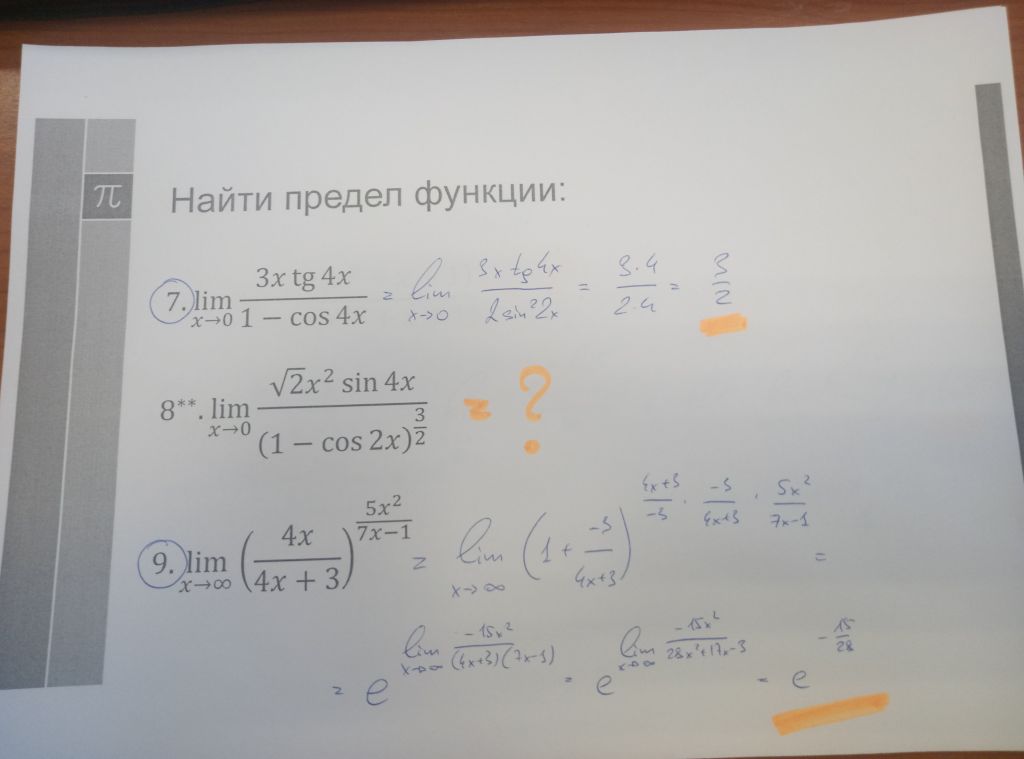 π
Найти предел функции:
7. lim x→0 (3x tg 4x)/(1 − cos 4x) = lim x→0 (3x tg 4x)/(2sin²2x) = (3·4)/(2·4) = 3/2
8**. lim x→0 (√2x² sin 4x)/(1 − cos 2x)^(3/2) = ?
9. lim x→∞ (4x/(4x + 3))^(5x²/(7x−1)) = lim x→∞ (1 + (−3)/(4x+3))^((4x+3)/(−3) · (−3)/(4x+3) · 5x²/(7x−1)) =
= e^(lim x→∞ (−15x²)/((4x+3)(7x−1))) = e^(lim x→∞ (−15x²)/(28x²+17x−3)) = e^(−15/28)